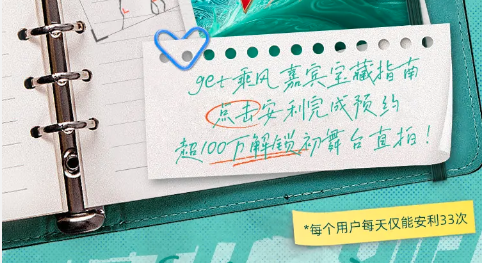 get乘风嘉宾宝藏指南
点击安利完成预约
超100万解锁初舞台直拍！
*每个用户每天仅能安利33次